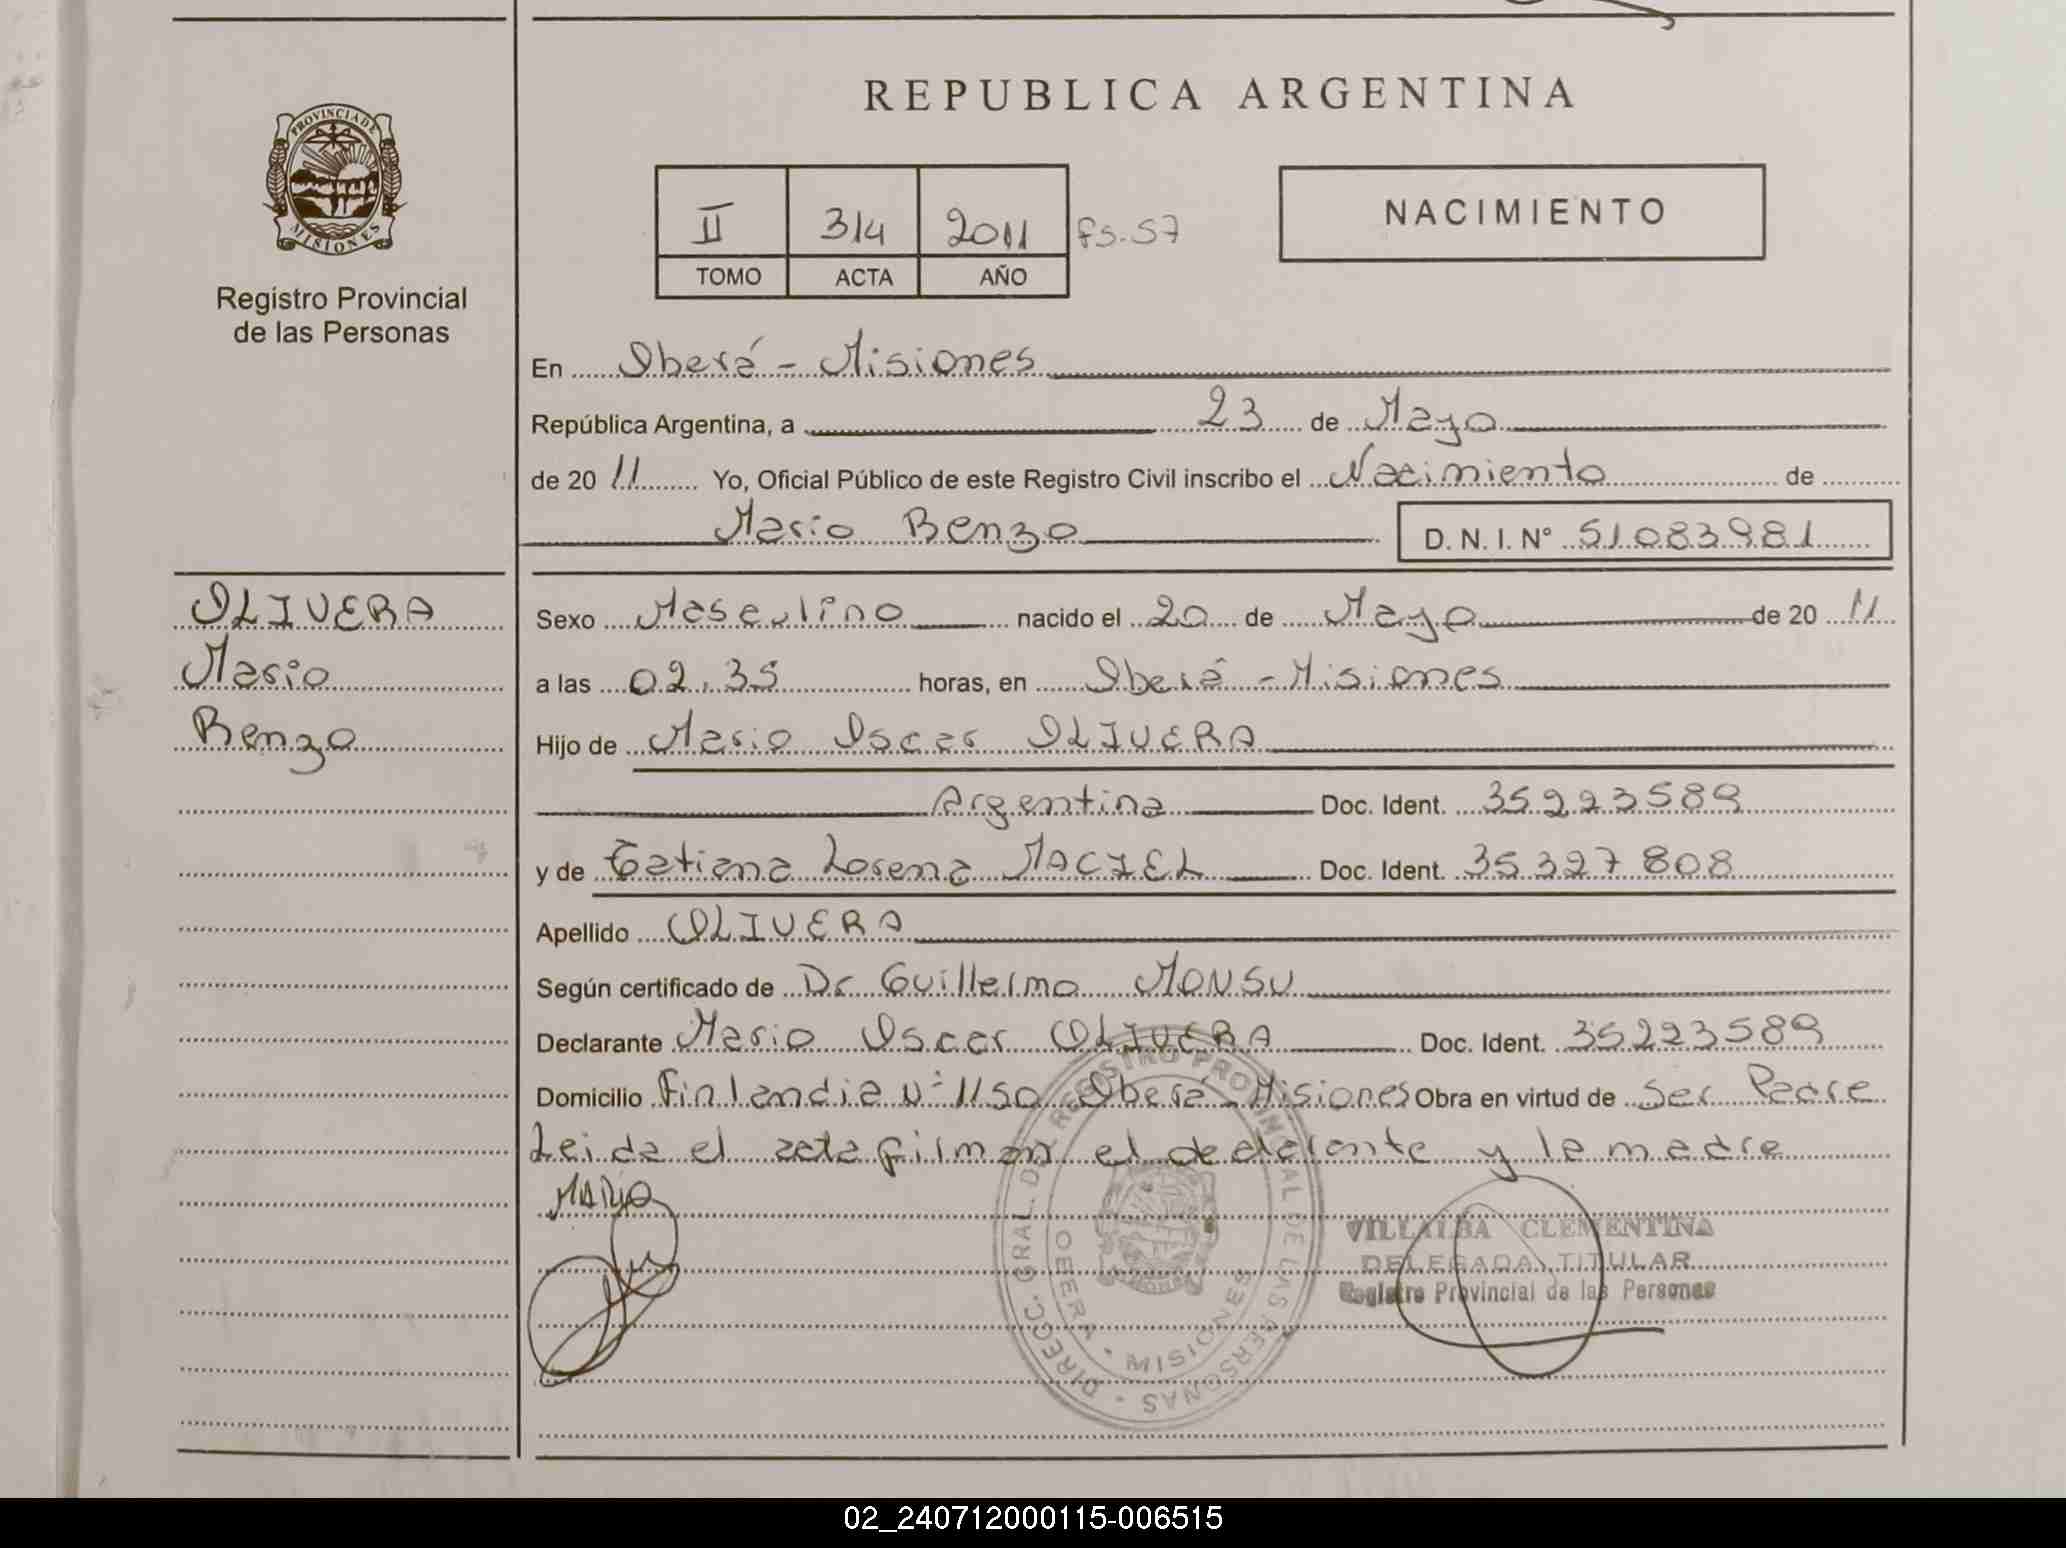 REPUBLICA ARGENTINA
PROVINCIA DE
MISIONES
Registro Provincial
de las Personas
II 314 2011 fs. 57
TOMO ACTA AÑO
NACIMIENTO
En Oberá - Misiones
República Argentina, a 23 de Mayo
de 20 11 Yo, Oficial Público de este Registro Civil inscribo el Nacimiento de
Mario Benzo D. N. I. Nº 51083981
OLIVERA
Mario
Benzo
Sexo Masculino nacido el 20 de Mayo de 20 11
a las 02,35 horas, en Oberá - Misiones
Hijo de Mario Oscar OLIVERA
Argentina Doc. Ident. 35223589
y de Tatiana Lorena MACIEL Doc. Ident. 35327808
Apellido OLIVERA
Según certificado de Dr Guillermo MONSU
Declarante Mario Oscar OLIVERA Doc. Ident. 35223589
Domicilio Finlandia Nº 1150 Oberá - Misiones Obra en virtud de Ser Padre
Leida el acta firman el declarante y la madre
MARIO
DIRECC. GRAL. DEL REGISTRO PROVINCIAL DE LAS PERSONAS
OBERA - MISIONES
VILLALBA CLEMENTINA
DELEGADA TITULAR
Registro Provincial de las Personas
02_240712000115-006515